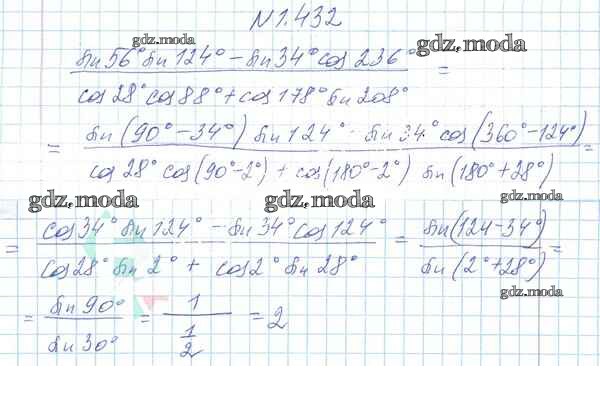 N 1.432
gdz.moda gdz.moda
sin 56° sin 124° − sin 34° cos 236° / cos 28° cos 88° + cos 178° sin 208° =
= sin (90° − 34°) sin 124° − sin 34° cos (360° − 124°) / cos 28° cos (90° − 2°) + cos (180° − 2°) sin (180° + 28°) =
gdz.moda gdz.moda gdz.moda
= cos 34° sin 124° − sin 34° cos 124° / cos 28° sin 2° + cos 2° sin 28° = sin (124 − 34°) / sin (2° + 28°) =
gdz.moda
= sin 90° / sin 30° = 1 / 1/2 = 2
gdz.moda gdz.moda